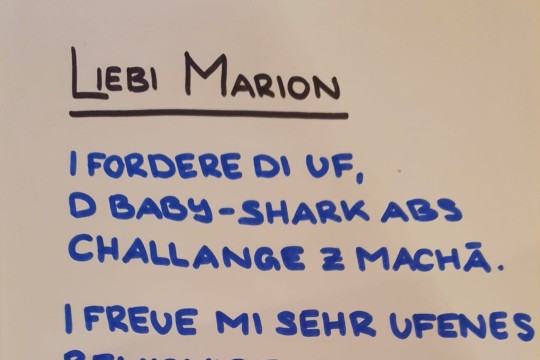 LIEBI MARION
I FORDERE DI UF,
D BABY-SHARK ABS
CHALLANGE Z MACHĀ.
I FREUE MI SEHR UFENES